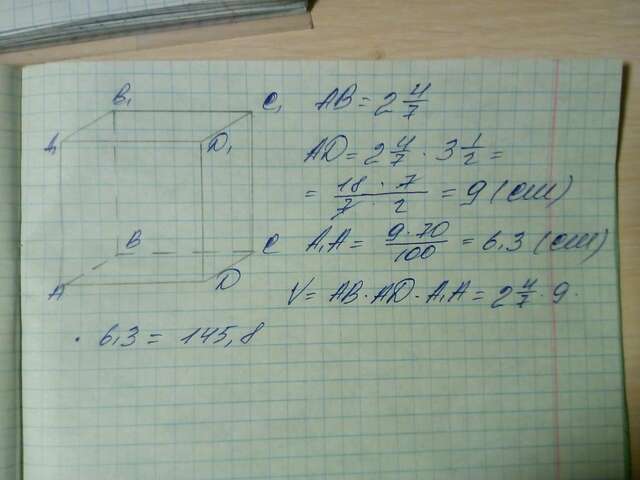 B₁
C₁
A₁
D₁
B
C
A
D
AB = 2 4/7
AD = 2 4/7 · 3 1/2 =
= 18 · 7 / 7 · 2 = 9 (см)
A₁A = 9·70/100 = 6,3 (см)
V = AB · AD · A₁A = 2 4/7 · 9 ·
· 6,3 = 145,8